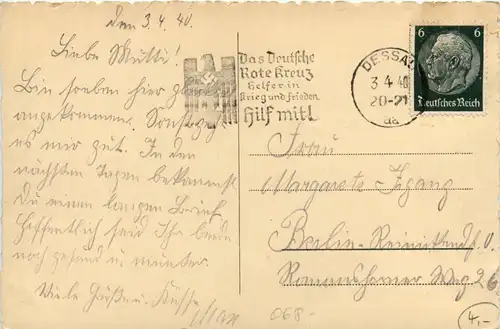 den 3.4.40.
Liebe Mutti!
Bin soeben hier
angekommen. Sonst
es mir gut. In den
nächsten Tagen bekommst
Du einen langen Brief.
Hoffentlich seid Ihr beide
noch gesund u. munter.
Viele Grüße u. Küsse
Das Deutsche
Rote Kreuz
Helfer in
Krieg und Frieden
Hilf mit!
DESSAU
3.4.40
20-21
da
6 6
Deutsches Reich
Frau
Margarete
Berlin-Reinickendf. O.
Romanshorner Weg 26
068-
4,-